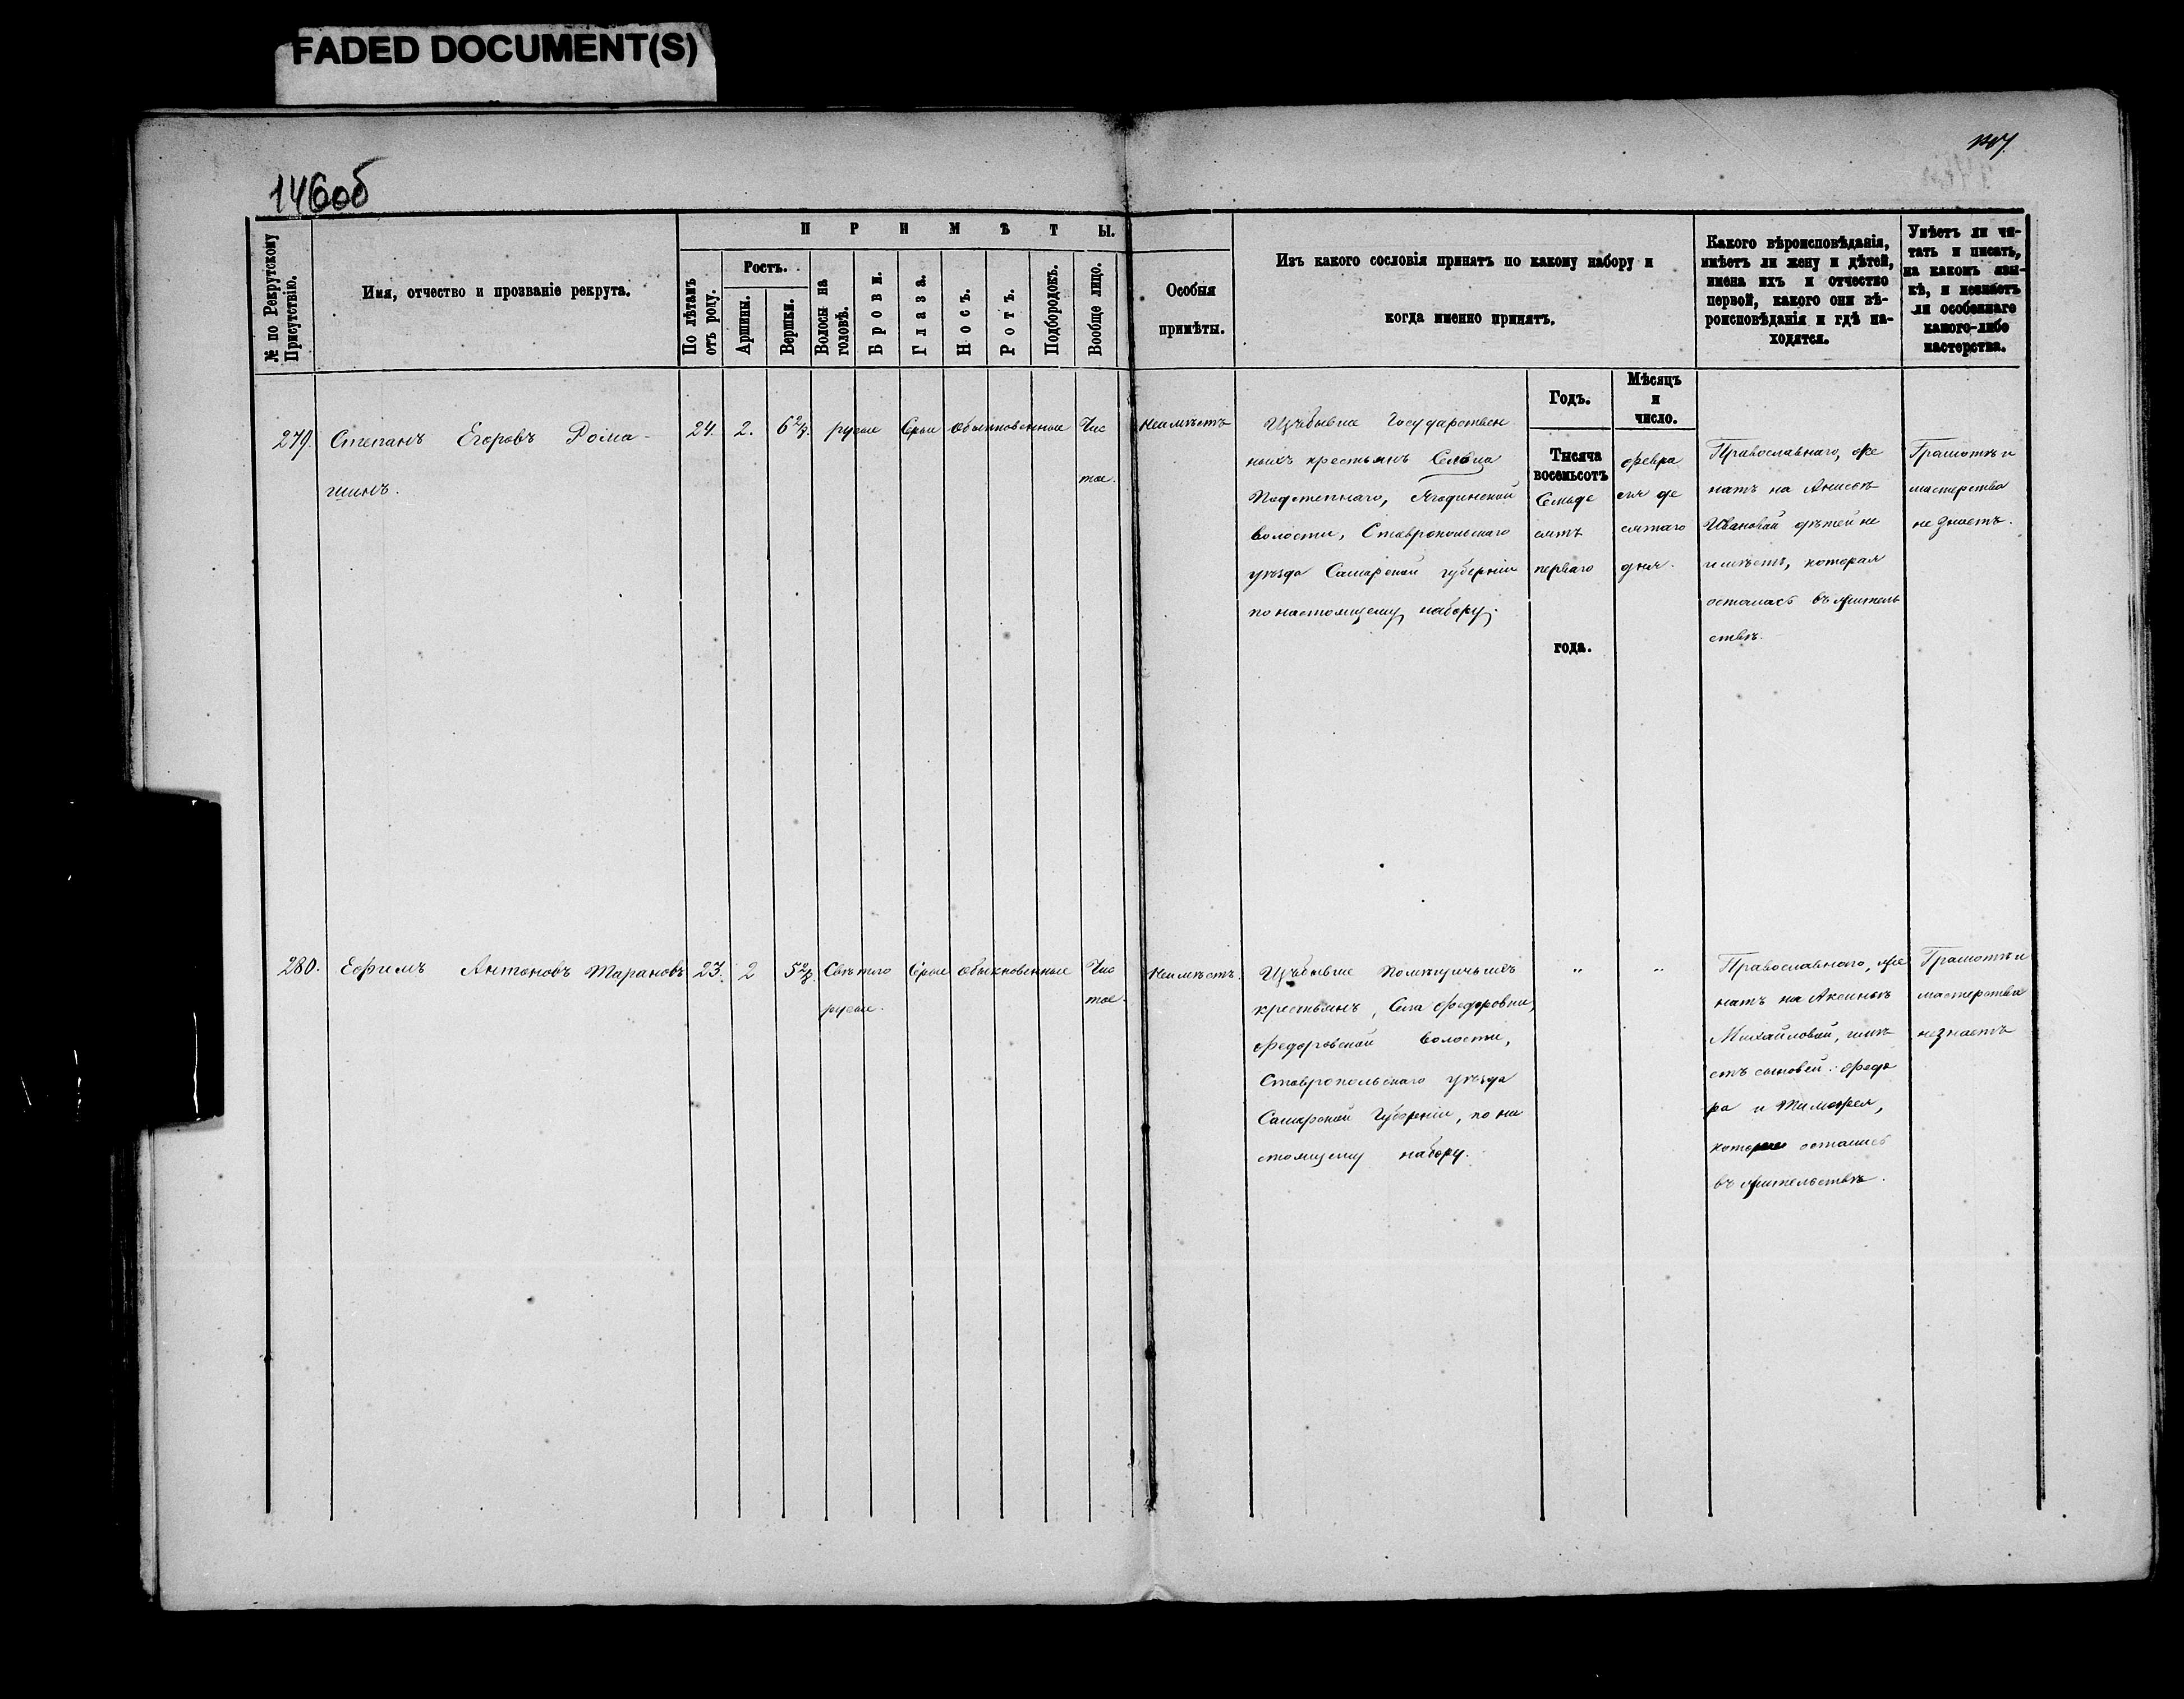 FADED DOCUMENT(S)
146об
П Р И М Ѣ Т Ы.
№ по Рекрутскому
Присутствію.
Имя, отчество и прозваніе рекрута.
По лѣтамъ
отъ роду.
Ростъ.
Аршины.
Вершки.
Волосы на
головѣ.
Брови.
Глаза.
Носъ.
Ротъ.
Подбородокъ.
Вообще лицо.
Особыя
примѣты.
Изъ какого сословія принятъ по какому набору и
когда именно принятъ.
Какого вѣроисповѣданія,
имѣетъ ли жену и дѣтей,
имена ихъ и отчество
первой, какого они вѣ-
роисповѣданія и гдѣ на-
ходятся.
Умѣетъ ли чи-
тать и писать,
на какомъ язы-
кѣ, и незнаетъ
ли особеннаго
какого-либо
мастерства.
Годъ.
Мѣсяцъ
и
число.
279. Степанъ Егоровъ Рома-
шинъ.
24. 2. 6 2/8. русые Серые обыкновенные Чис
тое.
Неимѣетъ
Изъ бывше Государствен
ныхъ крестьянъ Села
Подстепнаго, Ягодинской
волости, Ставропольскаго
уѣзда Самарской губерніи
по настоящему набору.
Тысяча
восемьсотъ
Семьде
сятъ
перваго
года.
Февра
ля де
сятаго
дня.
Православнаго, же
натъ на Анисьѣ
Ивановой дѣтей не
имѣетъ, которая
осталась въ житель
ствѣ.
Грамотѣ и
мастерства
не знаетъ.
280. Ефимъ Антоновъ Тарановъ
23. 2 5 2/8. Свѣтло Серые обыкновенные Чис
русые. тое.
Неимѣетъ.
Изъ бывше Помѣщичьихъ
крестьянъ, Села Федоровки,
Федоровской волости,
Ставропольскаго уѣзда
Самарской Губерніи, по на
стоящему набору.
" "
Православнаго, же
натъ на Аксиньѣ
Михайловой, имѣ
етъ сыновей: Федо
ра и Тимофея,
которые остались
въ жительствѣ.
Грамотѣ и
мастерства
незнаетъ